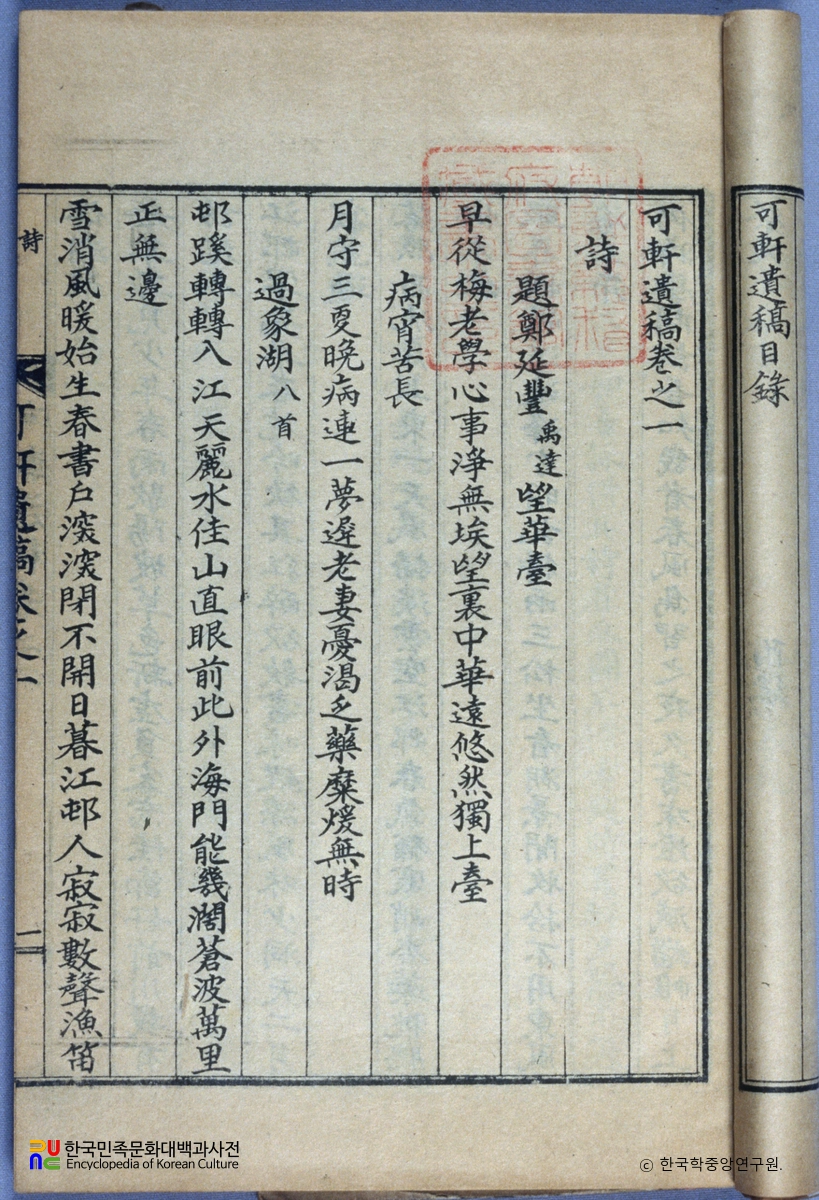 可軒遺稿目錄
可軒遺稿卷之一
詩
題鄭延豐禹達望華臺
早從梅老學心事淨無埃望裏中華遠悠然獨上臺
病宵苦長
月守三更晚病連一夢遲老妻憂渴乏藥糜煖無時
過象湖八首
邨蹊轉轉入江天麗水佳山直眼前此外海門能幾濶蒼波萬里
正無邊
雪消風暖始生春書戶深深閉不開日暮江邨人寂寂數聲漁笛
詩
可軒遺稿卷之一
한국민족문화대백과사전
Encyclopedia of Korean Culture
© 한국학중앙연구원.